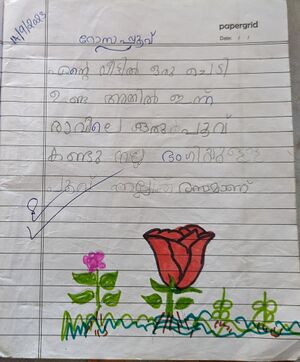 14/9/2023
papergrid
Date: / /
റോസപ്പൂവ്
എന്റെ വീട്ടിൽ ഒരു ചെടി
ഉണ്ട അതിൽ ഇന്ന്
രാവിലെ ഒരു പൂവ്
കണ്ടു നല്ല ഭംഗിയുള്ള
പൂവ് നല്ല രസമാണ്